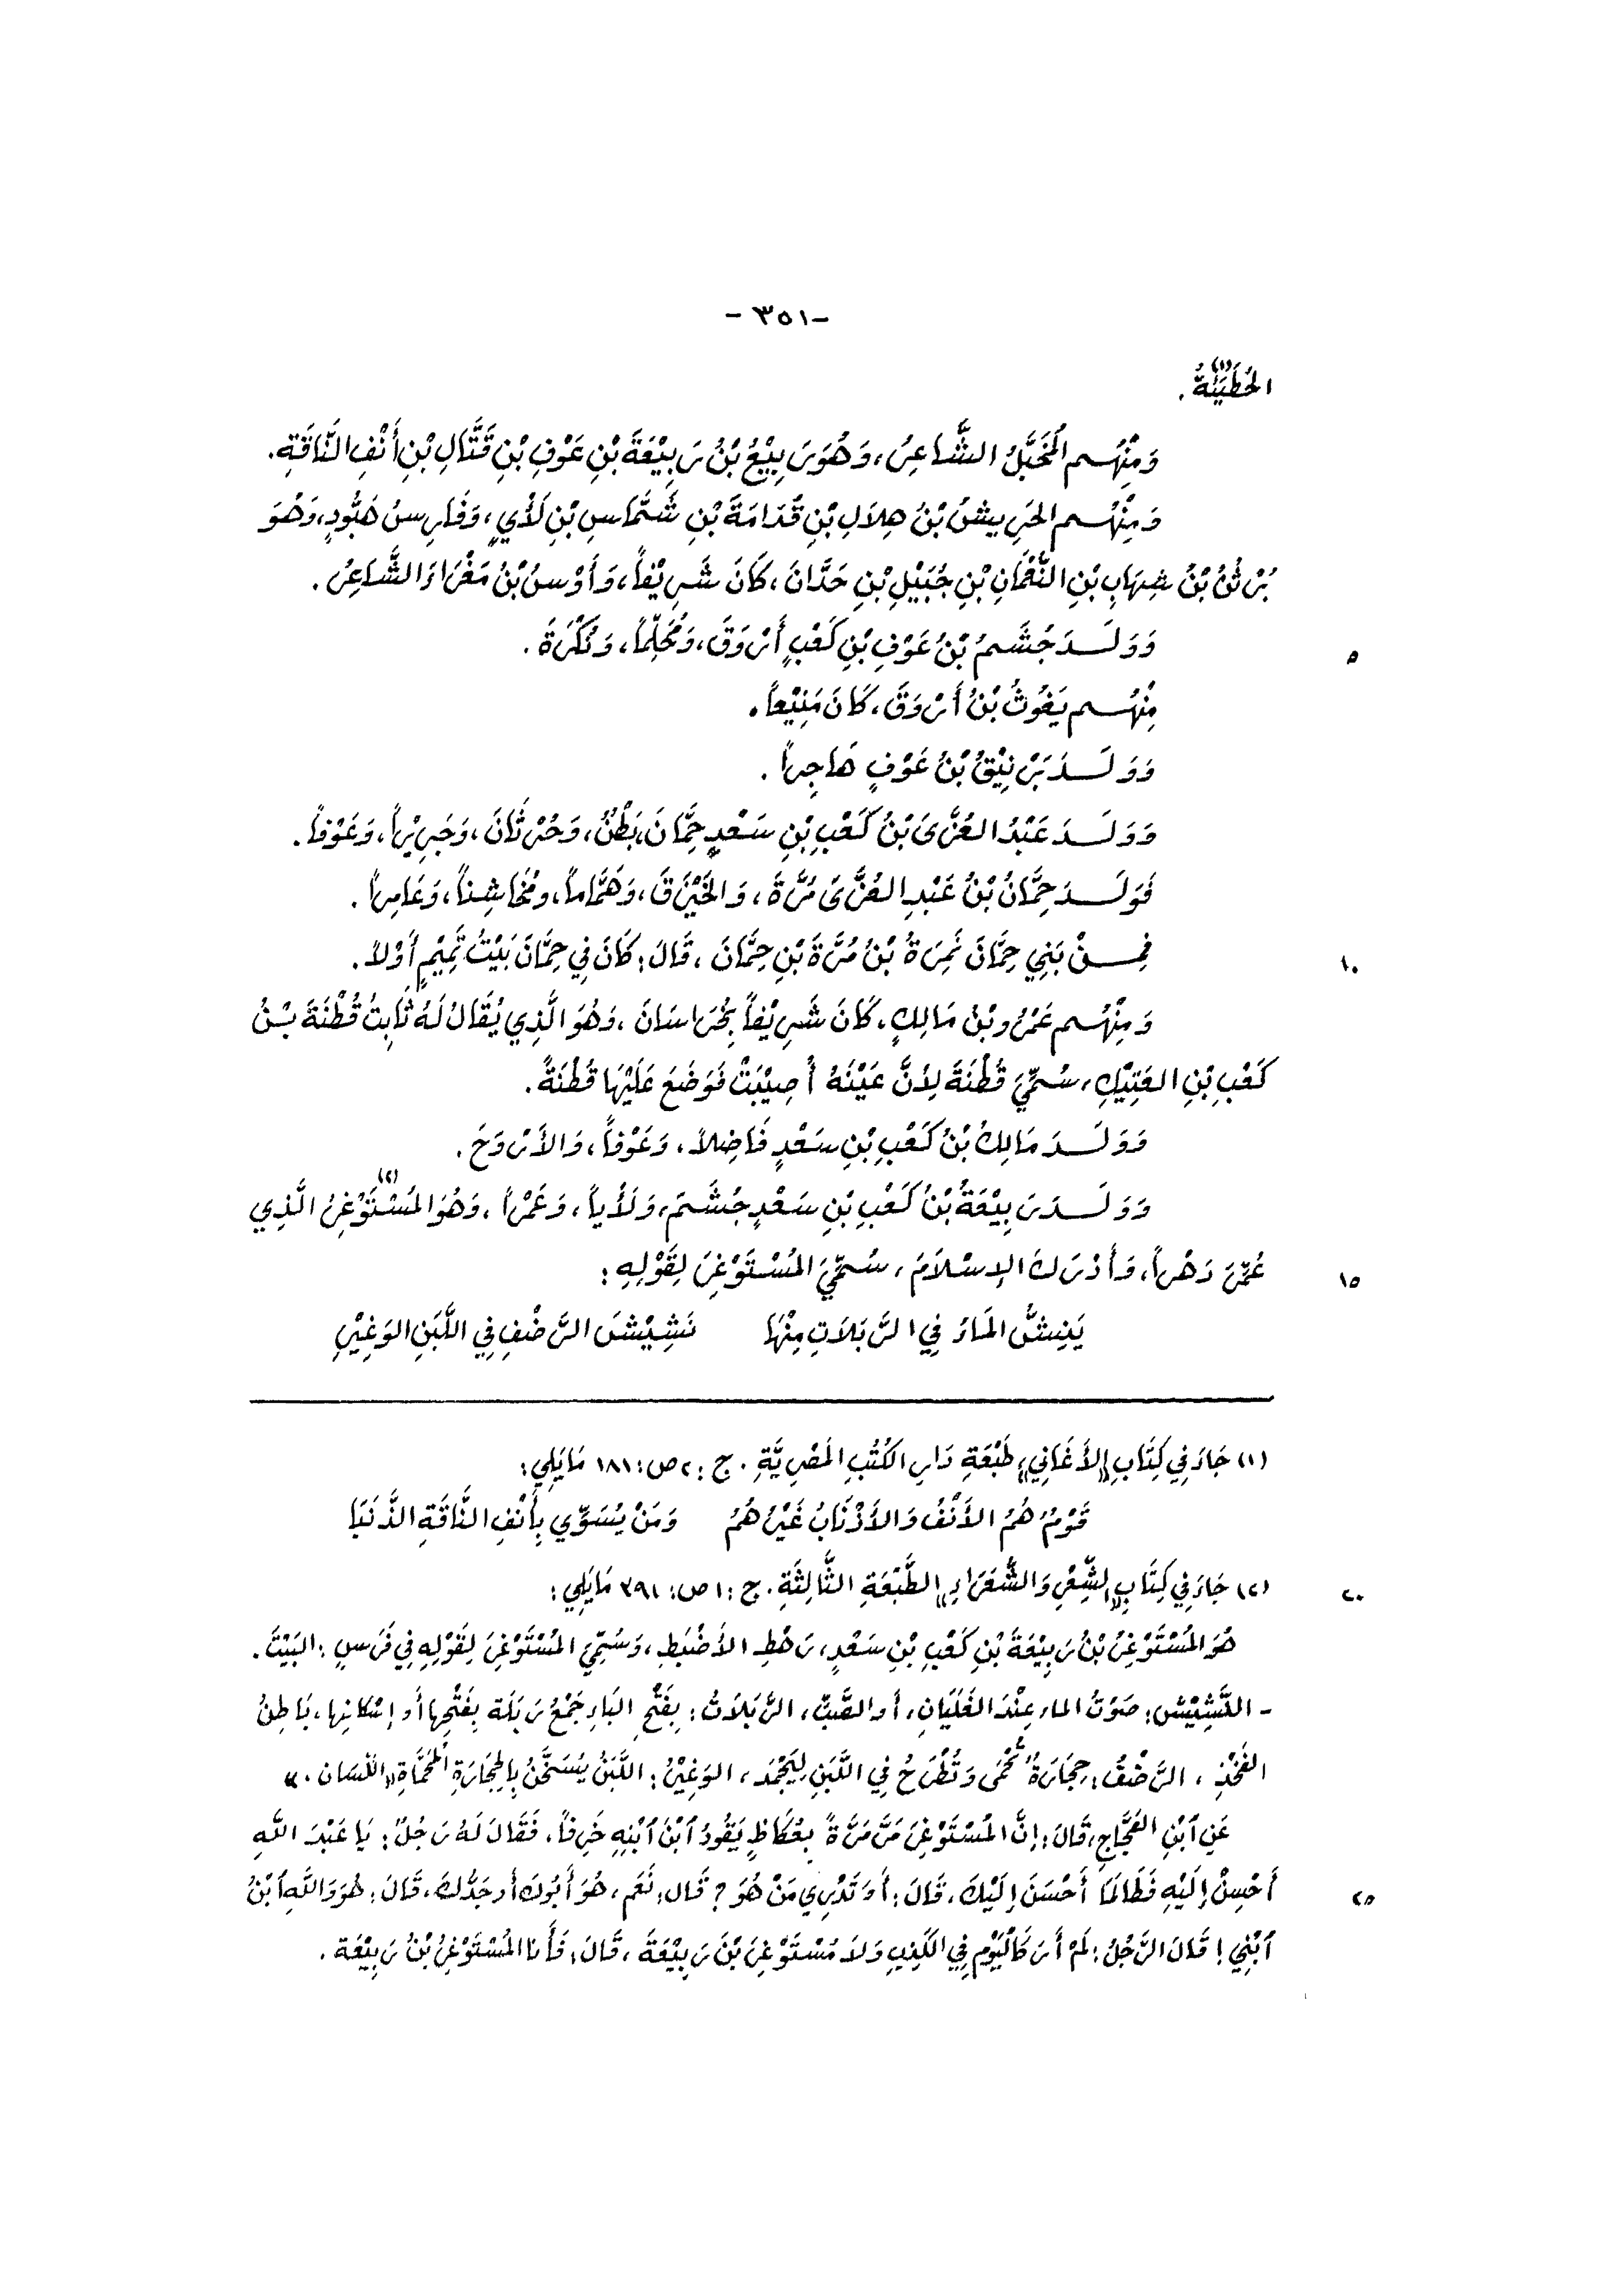 -٣٥١-
الحُطَيْئَةُ(١).
وَمِنْهُم المُخَبَّلُ الشَّاعِرُ، وَهُوَ رَبِيْعُ بْنُ رَبِيْعَةَ بْنِ عَوْفِ بْنِ قَتَّالِ بْنِ أَنْفِ النَّاقَةِ.
وَمِنْهُم الحَرِيشُ بْنُ هِلَالِ بْنِ قُدَامَةَ بْنِ شَمَّاسِ بْنِ لَأْيٍ، وَفَارِسُ هَبُّودٍ، وَهُوَ
بُرْثُنُ بْنُ شِهَابِ بْنِ النُّعْمَانِ بْنِ جُبَيْلِ بْنِ حَدَّانَ، كَانَ شَرِيْفاً، وَأَوْسُ بْنُ مَغْرَاءَ الشَّاعِرُ.
٥ وَوَلَدَ جُشَمُ بْنُ عَوْفِ بْنِ كَعْبٍ أَرْوَقَ، وَمُحَلِّماً، وَنُكْرَةَ.
مِنْهُم يَغُوثُ بْنُ أَرْوَقَ، كَانَ مَنِيْعاً.
وَوَلَدَ بَرْنِيْقُ بْنُ عَوْفٍ هَاجِراً.
وَوَلَدَ عَبْدُ العُزَّى بْنُ كَعْبِ بْنِ سَعْدٍ حِمَّانَ، بَطْنٌ، وَحُرْثَانَ، وَجَرِيْراً، وَعَوْفاً.
فَوَلَدَ حِمَّانُ بْنُ عَبْدِ العُزَّى مُرَّةَ، وَالخَيْزَقَ، وَهَمَّاماً، ومُخَاشِناً، وَعَامِراً.
١٠ فَمِنْ بَنِي حِمَّانَ نَمِرَةُ بْنُ مُرَّةَ بْنِ حِمَّانَ، قَالَ: كَانَ فِي حِمَّانَ بَيْتُ تَمِيْمٍ أَوَّلاً.
وَمِنْهُم عَمْرُو بْنُ مَالِكٍ، كَانَ شَرِيْفاً بِخُرَاسَانَ، وَهُوَ الَّذِي يُقَالُ لَهُ ثَابِتُ قُطْنَةَ بْنُ
كَعْبِ بْنِ العَتِيْكِ، سُمِّيَ قُطْنَةَ لِأَنَّ عَيْنَهُ أُصِيْبَتْ فَوَضَعَ عَلَيْهَا قُطْنَةً.
وَوَلَدَ مَالِكُ بْنُ كَعْبِ بْنِ سَعْدٍ فَاضِلاً، وَعَوْفاً، وَالأَرْوَحَ.
وَوَلَدَ رَبِيْعَةُ بْنُ كَعْبِ بْنِ سَعْدٍ جُشَمَ، وَلَأْياً، وَعَمْراً، وَهُوَ المُسْتَوْغِرُ(٢) الَّذِي
١٥ عُمِّرَ دَهْراً، وَأَدْرَكَ الإِسْلَامَ، سُمِّيَ المُسْتَوْغِرَ لِقَوْلِهِ:
يَنِشُّ المَاءُ فِي الرَّبَلَاتِ مِنْهَا نَشِيْشَ الرَّضْفِ فِي اللَّبَنِ الوَغِيْرِ
(١) جَاءَ فِي كِتَابِ «الأَغَانِي» طَبْعَةِ دَارِ الكُتُبِ المَصْرِيَّةِ. ج: ٢ ص: ١٨١ مَا يَلِي:
قَوْمٌ هُمُ الأَنْفُ وَالأَذْنَابُ غَيْرُهُمُ وَمَنْ يُسَوِّي بِأَنْفِ النَّاقَةِ الذَّنَبَا
٢٠ (٢) جَاءَ فِي كِتَابِ «الشِّعْرِ وَالشُّعَرَاءِ» الطَّبْعَةِ الثَّالِثَةِ. ج: ١ ص: ٣٩١ مَا يَلِي:
هُوَ المُسْتَوْغِرُ بْنُ رَبِيْعَةَ بْنِ كَعْبِ بْنِ سَعْدٍ، رَهْطِ الأَضْبَطِ، وَسُمِّيَ المُسْتَوْغِرَ لِقَوْلِهِ فِي فَرَسٍ: البَيْتَ.
- النَّشِيْشُ: صَوْتُ الماء عِنْدَ الغَلَيَانِ، أو الصَّبِّ، الرَّبَلَاتُ: بِفَتْحِ البَاءِ جَمْعُ رَبَلَة بِفَتْحِها أو إسْكَانِها، بَاطِنُ
الفَخْذِ، الرَّضْفُ: حِجَارَةٌ تُحْمَى وَتُطْرَحُ فِي اللَّبَنِ لِيَجْمُدَ، الوَغِيْرُ: اللَّبَنُ يُسَخَّنُ بِالحِجَارَةِ المُحْمَاةِ «اللسَان.»
عَنِ ٱبْنِ العَجَّاجِ، قَالَ: إِنَّ المُسْتَوْغِرَ مَرَّ مَرَّةً بِعُكَاظٍ يَقُودُ ٱبْنَ ٱبْنِهِ خَرِفاً، فَقَالَ لَهُ رَجُلٌ: يَا عَبْدَ اللَّهِ
٢٥ أَحْسِنْ إِلَيْهِ فَطَالَمَا أَحْسَنَ إِلَيْكَ، قَالَ: أَوَ تَدْرِي مَنْ هُوَ؟ قَالَ: نَعَم، هُوَ أَبُوكَ أو جَدُّكَ، قَالَ: هُوَ وَاللَّهِ ٱبْنُ
ٱبْنِي! قَالَ الرَّجُلُ: لَمْ أَرَ كَاليَوْمِ فِي الكَذِبِ وَلَا مُسْتَوْغِرَ بْنَ رَبِيْعَةَ، قَالَ: فَأَنا المُسْتَوْغِرُ بْنُ رَبِيْعَة.